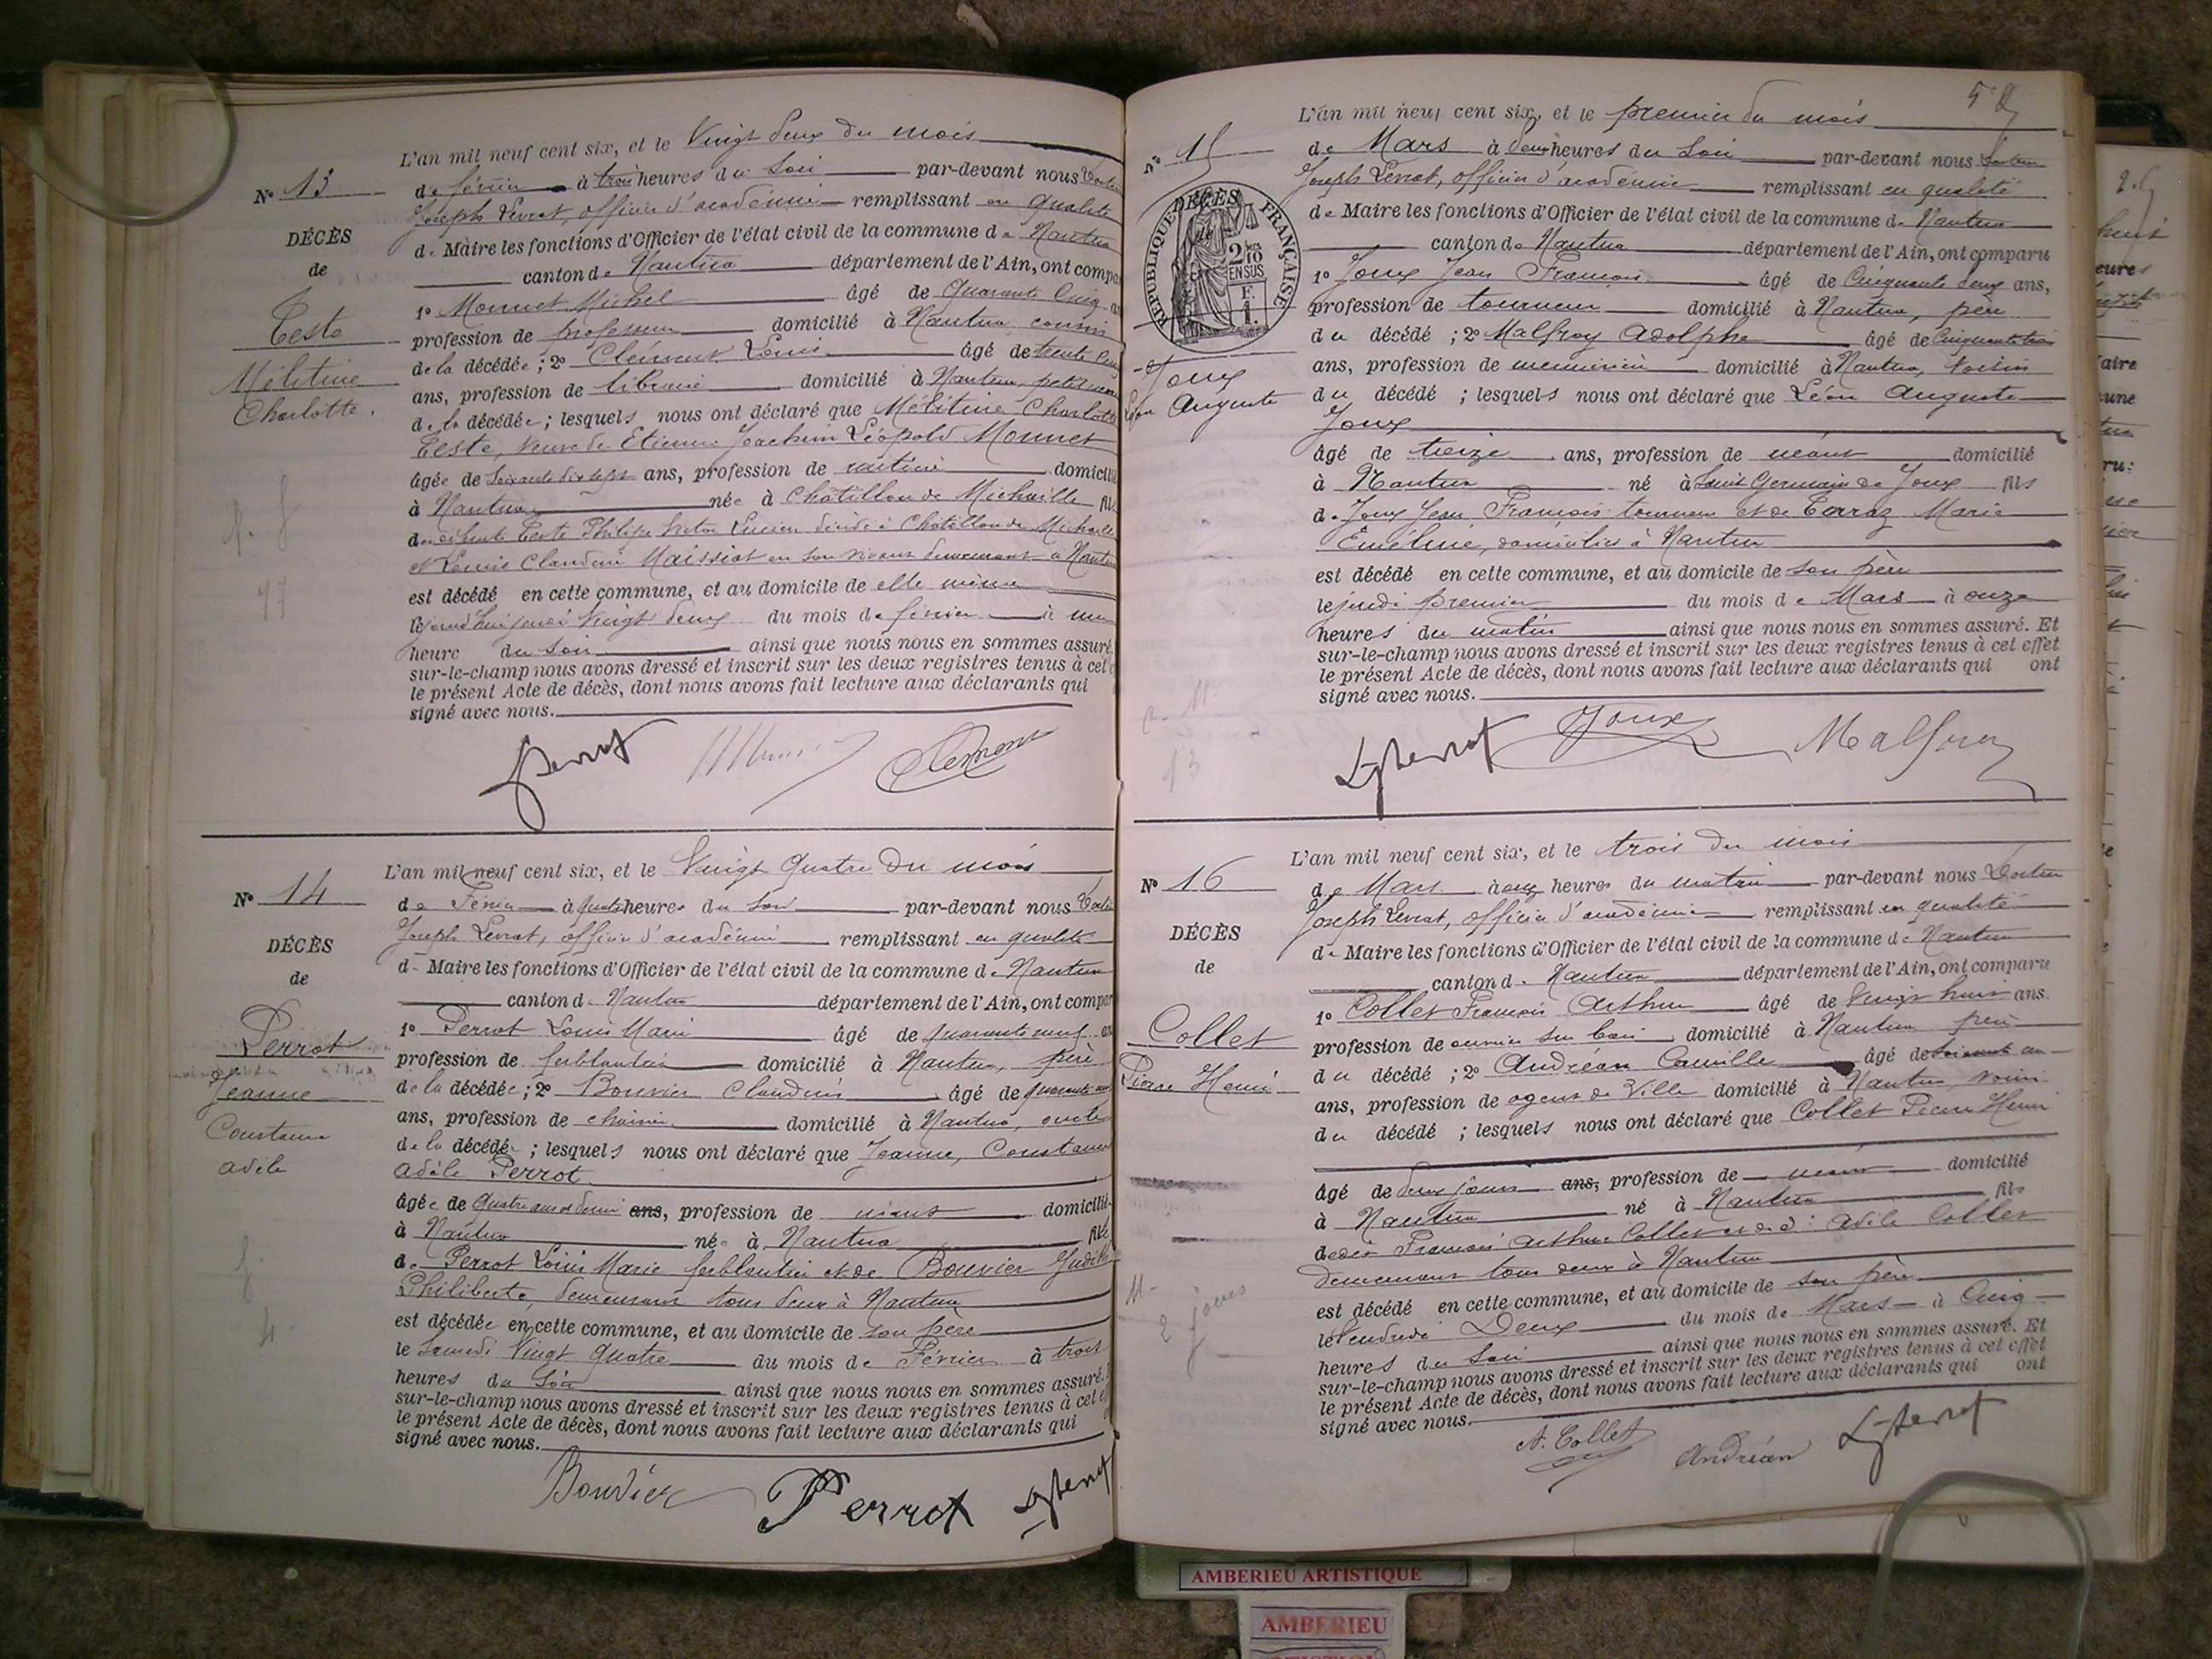 L'an mil neuf cent six, et le Vingt deux du mois
Nº 13
de février à trois heures du Soir par-devant nous
Joseph Levrat, officier d'académie remplissant en qualité
DÉCÈS
de Maire les fonctions d'Officier de l'état civil de la commune de Nantua
de
canton de Nantua département de l'Ain, ont compa
1º Monnet Michel âgé de quarante cinq
Teste
profession de professeur domicilié à Nantua cousin
de la décédée; 2º Louis âgé de trente
Mélitine
ans, profession de libraire domicilié à Nantua, petit
Charlotte.
de la décédée; lesquels nous ont déclaré que Mélitine Charlotte
Teste, veuve de Etienne Joachim Léopold Monnet
âgée de soixante dix sept ans, profession de rentière domicili
à Nantua née à Châtillon de Michaille
du défunt Teste Philippe Victor Lucien décédé à Châtillon de Michaille
et Louise Claudine Maissiat en son vivant demeurant à Nantua
est décédé en cette commune, et au domicile de elle même
77
le jourd'hui jeudi Vingt deux du mois de février à une
heure du Soir ainsi que nous nous en sommes assuré
sur-le-champ nous avons dressé et inscrit sur les deux registres tenus à cet
le présent Acte de décès, dont nous avons fait lecture aux déclarants qui
signé avec nous.
L'an mil neuf cent six, et le Vingt Quatre du mois
Nº 14
de Février à quatre heures du Soir par-devant nous
Joseph Levrat, officier d'académie remplissant en qualité
DÉCÈS
de Maire les fonctions d'Officier de l'état civil de la commune de Nantua
de
canton de Nantua département de l'Ain, ont compar
1º Perrot Louis Marie âgé de quarante neuf
Perrot
profession de ferblantier domicilié à Nantua, père
Jeanne
de la décédée; 2º Bouvier Claudius âgé de quarante
Constance
ans, profession de domicilié à Nantua, oncle
Adèle
de la décédée; lesquels nous ont déclaré que Jeanne, Constance
Adèle Perrot
âgée de Quatre ans et demi ans, profession de néant domicilié
à Nantua née à Nantua fille
de Perrot Louis Marie ferblantier et de Bouvier Judith
Philiberte, demeurant tous deux à Nantua
4
est décédée en cette commune, et au domicile de son père
le Samedi Vingt quatre du mois de Février à trois
heures du Soir ainsi que nous nous en sommes assuré.
sur-le-champ nous avons dressé et inscrit sur les deux registres tenus à cet
le présent Acte de décès, dont nous avons fait lecture aux déclarants qui
signé avec nous.
Bouvier Perrot
L'an mil neuf cent six, et le premier du mois
Nº 15
de Mars à deux heures du Soir par-devant nous Docteur
Joseph Levrat, officier d'académie remplissant en qualité
de Maire les fonctions d'Officier de l'état civil de la commune de Nantua
DÉCÈS
RÉPUBLIQUE FRANÇAISE
2/10 EN SUS
canton de Nantua département de l'Ain, ont comparu
1º Joux Jean François âgé de Cinquante deux ans,
profession de tourneur domicilié à Nantua, père
du décédé; 2º Malfroy Adolphe âgé de Cinquante trois
Joux
ans, profession de menuisier domicilié à Nantua, voisin
Léon Auguste
du décédé; lesquels nous ont déclaré que Léon Auguste
Joux
âgé de treize ans, profession de néant domicilié
à Nantua né à Saint Germain de Joux fils
de Joux Jean François tourneur et de Terraz Marie
Eméline, domiciliés à Nantua
est décédé en cette commune, et au domicile de son père
le jeudi premier du mois de Mars à onze
heures du matin ainsi que nous nous en sommes assuré. Et
sur-le-champ nous avons dressé et inscrit sur les deux registres tenus à cet effet
le présent Acte de décès, dont nous avons fait lecture aux déclarants qui ont
signé avec nous.
13
Joux Malfroy
L'an mil neuf cent six, et le trois du mois
Nº 16
de Mars à onze heures du matin par-devant nous Docteur
Joseph Levrat, officier d'académie remplissant en qualité
DÉCÈS
de Maire les fonctions d'Officier de l'état civil de la commune de Nantua
de
canton de Nantua département de l'Ain, ont comparu
1º Collet François Arthur âgé de Vingt huit ans.
Collet
profession de ouvrier sur bois domicilié à Nantua père
Pierre Henri
du décédé; 2º Andréan Camille âgé de soixante un
ans, profession de agent de Ville domicilié à Nantua, voisin
du décédé; lesquels nous ont déclaré que Collet Pierre Henri
âgé de deux jours ans, profession de néant domicilié
à Nantua né à Nantua fils
de dit François Arthur Collet et de Adèle Collet
demeurant tous deux à Nantua
2 jours
est décédé en cette commune, et au domicile de son père
le Vendredi Deux du mois de Mars à Cinq
heures du Soir ainsi que nous nous en sommes assuré. Et
sur-le-champ nous avons dressé et inscrit sur les deux registres tenus à cet effet
le présent Acte de décès, dont nous avons fait lecture aux déclarants qui ont
signé avec nous.
A. Collet Andréan
AMBERIEU ARTISTIQUE
AMBERIEU